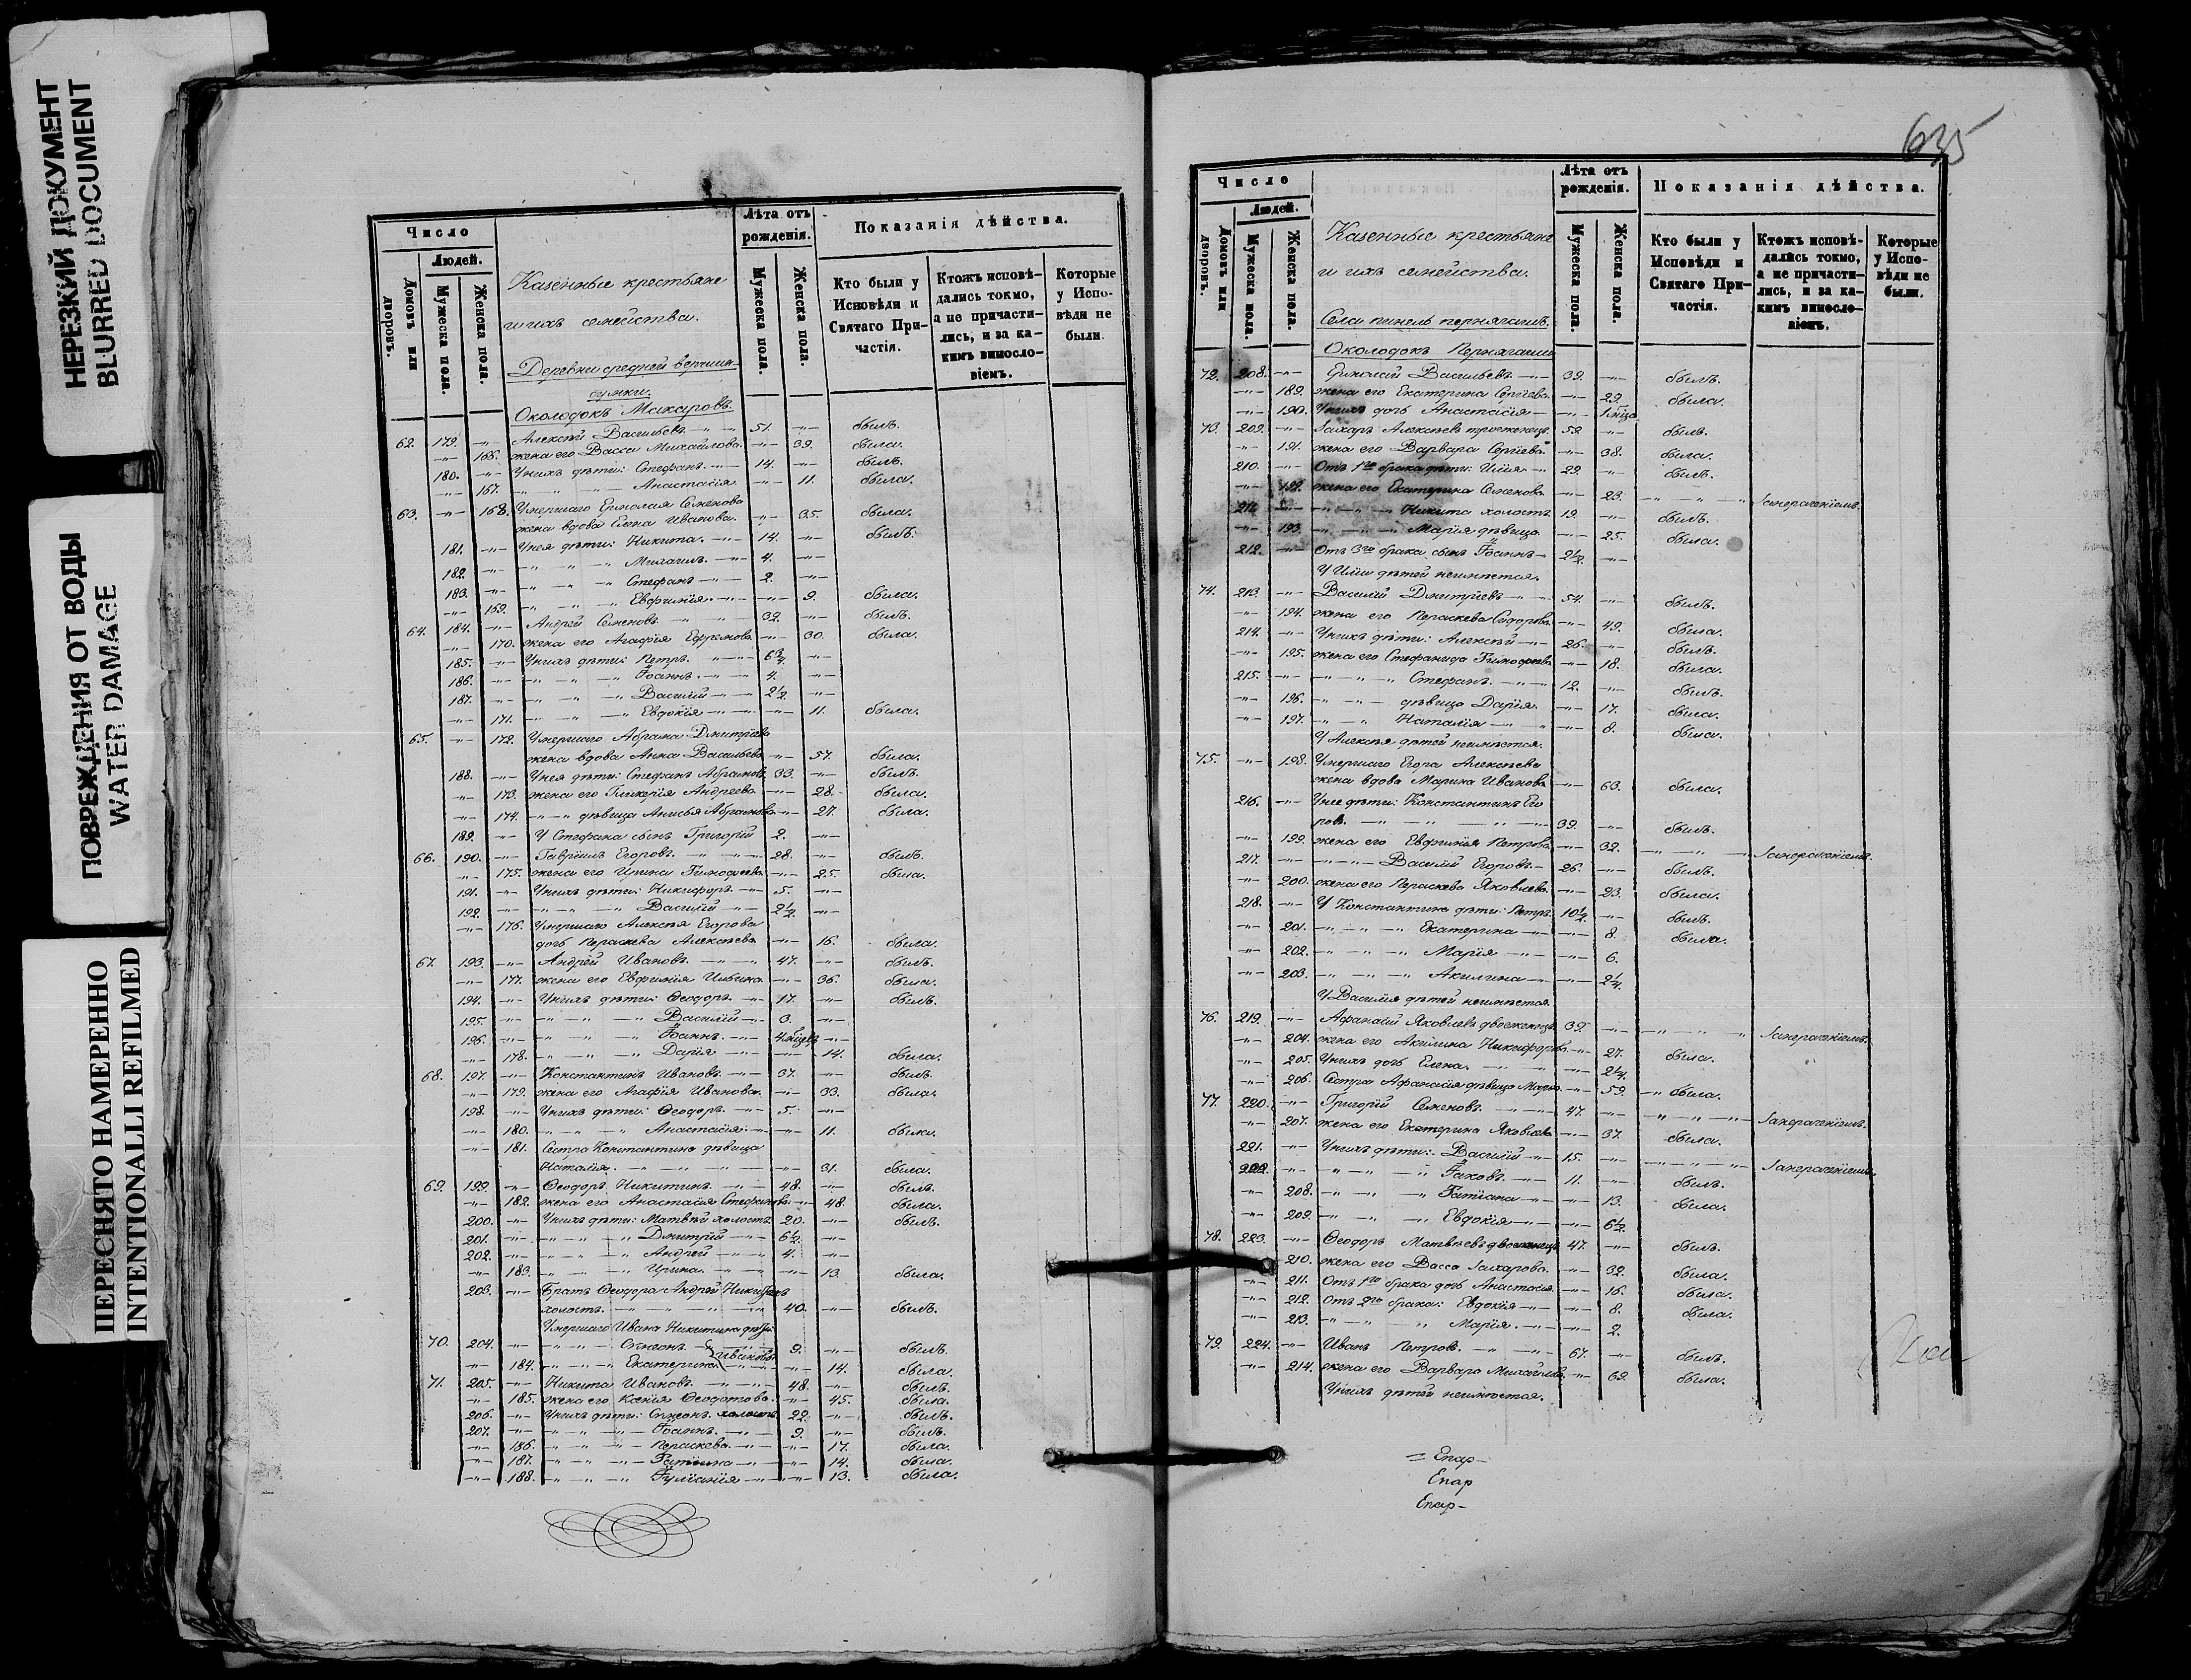 НЕРЕЗКИЙ ДОКУМЕНТ
BLURRED DOCUMENT
ПОВРЕЖДЕНИЯ ОТ ВОДЫ
WATER DAMAGE
ПЕРЕСНЯТО НАМЕРЕННО
INTENTIONALLI REFILMED
Число
Людей.
Домовъ или дворовъ.
Мужеска пола.
Женска пола.
Казенные крестьяне
и ихъ семейства.
Деревни средней
Околодокъ Макаровъ.
Лѣта отъ рожденія.
Мужеска пола.
Женска пола.
Показанія дѣйства.
Кто были у Исповѣди и Святаго Причастія.
Ктожъ исповѣдались токмо, а не причастились, и за какимъ винословіемъ.
Которые у Исповѣди не были.
62. 179. -"- Алексѣй Васильевъ -"- 51. -"- былъ.
-"- 166. жена его Васса Михайлова -"- 39. была.
180. -"- У нихъ дѣти: Стефанъ. -"- 14. -"- былъ.
-"- 167. -"- -"- Анастасія -"- 11. была.
63. -"- 168. Умершаго Ермолая Семенова
жена вдова Елена Иванова. -"- 35. была.
181. -"- У нея дѣти: Никита. -"- 14. -"- былъ.
182. -"- -"- -"- Михаилъ -"- 4. -"-
183. -"- -"- -"- Стефанъ -"- 2. -"-
-"- 169. -"- -"- Евфимія. -"- 9. была.
64. 184. -"- Андрей Семеновъ -"- 32. -"- былъ.
-"- 170. жена его Агафія Ефремова -"- 30. была.
185. -"- У нихъ дѣти: Петръ. -"- 6¾ -"-
186. -"- -"- -"- Іоаннъ. -"- 4. -"-
187. -"- -"- -"- Василій -"- 2½ -"-
-"- 171. -"- -"- Евдокія -"- 11. была.
65. -"- 172. Умершаго Абрама Дмитріева
жена вдова Анна Васильева -"- 57. была.
188. -"- У нея дѣти: Стефанъ Абрамовъ 33. -"- былъ.
-"- 173. жена его Гликерія Андреева -"- 28. была.
-"- 174. -"- дѣвица Анисья Абрамова -"- 27. была.
189. -"- У Стефана сынъ Григорій 2. -"-
66. 190. -"- Гавріилъ Егоровъ. -"- 28. -"- былъ.
-"- 175. жена его Ирина Тимофеева -"- 25. была.
191. -"- У нихъ дѣти: Никифоръ. -"- 5. -"-
192. -"- -"- -"- Василій -"- 2½ -"-
-"- 176. Умершаго Алексѣя Егорова
дочь Параскева Алексѣева -"- 16. была.
67. 193. -"- Андрей Ивановъ. -"- 47. -"- былъ.
-"- 177. жена его Евфимія Ильина. -"- 36. была.
194. -"- У нихъ дѣти: Ѳеодоръ. -"- 17. -"- былъ.
195. -"- -"- -"- Василій -"- 3. -"-
196. -"- -"- -"- Іоаннъ. -"- 4 мѣсцъ -"-
-"- 178. -"- -"- Дарія -"- 14. была.
68. 197. -"- Константинъ Ивановъ. -"- 37. -"- былъ.
-"- 179. жена его Агафія Иванова. -"- 33. была.
198. -"- У нихъ дѣти: Ѳеодоръ. -"- 5. -"-
-"- 180. -"- -"- Анастасія. -"- 11. была.
-"- 181. Сестра Константина дѣвица
Наталія. -"- 31. была.
69. 199. -"- Ѳеодоръ Никитинъ. -"- 48. -"- былъ.
-"- 182. жена его Анастасія Стефанова -"- 48. была.
200. -"- У нихъ дѣти: Матвѣй холостъ 20. -"- былъ.
201. -"- -"- -"- Дмитрій -"- 6½ -"-
202. -"- -"- -"- Андрей -"- 4. -"-
-"- 183. -"- -"- Ирина. -"- 13. была.
203. -"- Братъ Ѳеодора Андрей Никитинъ
холостъ. -"- 40. -"- былъ.
Умершаго Ивана Никитина дѣти:
70. 204. -"- -"- Сѵмеонъ. -"- Ивановы 9. -"- былъ.
-"- 184. -"- -"- Екатерина -"- 14. была.
71. 205. -"- Никита Ивановъ. -"- 48. -"- былъ.
-"- 185. жена его Ксенія Ѳеодотова. -"- 45. была.
206. -"- У нихъ дѣти: Сѵмеонъ холостъ 22. -"- былъ.
207. -"- -"- -"- Іоаннъ. -"- 9. -"- былъ.
-"- 186. -"- -"- Параскева. -"- 17. была.
-"- 187. -"- -"- Татіана -"- 14. была.
-"- 188. -"- -"- Іуліанія -"- 13. была.
635
Число
Людей.
Домовъ или дворовъ.
Мужеска пола.
Женска пола.
Казенные крестьяне
и ихъ семейства.
Села
Околодокъ Пернягаши
Лѣта отъ рожденія.
Мужеска пола.
Женска пола.
Показанія дѣйства.
Кто были у Исповѣди и Святаго Причастія.
Ктожъ исповѣдались токмо, а не причастились, и за какимъ винословіемъ.
Которые у Исповѣди не были.
72. 208. -"- Ермолай Васильевъ -"- 39. -"- былъ.
-"- 189. жена его Екатерина Сергѣева. -"- 29. была.
-"- 190. У нихъ дочь Анастасія -"- 1 мѣсца
73. 209. -"- Захаръ Алексѣевъ троеженецъ. 59. -"- былъ.
-"- 191. жена его Варвара Сергѣева -"- 38. была.
210. -"- Отъ 1го брака дѣти: Илія -"- 29. -"- былъ.
-"- 192. жена его Екатерина Семенова -"- 23. -"- За нерачѣніемъ.
211. -"- -"- -"- Никита холостъ. 19. -"- былъ.
-"- 193. -"- -"- Марія дѣвица. -"- 25. была.
212. -"- Отъ 3го брака сынъ Іоаннъ -"- 2½ -"-
У Иліи дѣтей неимѣется.
74. 213. -"- Василій Дмитріевъ -"- 54. -"- былъ.
-"- 194. жена его Параскева Сидорова -"- 49. была.
214. -"- У нихъ дѣти: Алексѣй -"- 26. -"- былъ.
-"- 195. жена его Стефанида Тимофеева -"- 18. была.
215. -"- -"- -"- Стефанъ. -"- 12. -"- былъ.
-"- 196. -"- -"- дѣвица Дарія. -"- 17. была.
-"- 197. -"- -"- Наталія -"- 8. была.
У Алексѣя дѣтей неимѣется.
75. -"- 198. Умершаго Егора Алексѣева
жена вдова Марина Иванова -"- 63. была.
216. -"- У нее дѣти: Константинъ Его
ровъ. -"- 39. -"- былъ.
-"- 199. жена его Евфимія Петрова -"- 32. -"- За нерачѣніемъ.
217. -"- -"- -"- Василій Егоровъ. -"- 26. -"- былъ.
-"- 200. жена его Параскева Яковлева. -"- 23. была.
218. -"- У Константина дѣти: Петръ. 10½ -"- былъ.
-"- 201. -"- -"- Екатерина -"- 8. была.
-"- 202. -"- -"- Марія -"- 6.
-"- 203. -"- -"- Акилина -"- 2¼
У Василія дѣтей неимѣется.
76. 219. -"- Афанасій Яковлевъ двоеженецъ 39. -"- -"- За нерачѣніемъ.
-"- 204. жена его Акилина Никифорова -"- 27. была.
-"- 205. У нихъ дочь Елена. -"- 2¼
-"- 206. Сестра Афанасія дѣвица Марья -"- 59. -"- была.
77. 220. -"- Григорій Семеновъ. -"- 47. -"- -"- За нерачѣніемъ.
-"- 207. жена его Екатерина Яковлева -"- 37. была.
221. -"- У нихъ дѣти: Василій -"- 15. -"- -"- За нерачѣніемъ.
222. -"- -"- -"- Іаковъ. -"- 11. -"- былъ.
-"- 208. -"- -"- Татіана -"- 13. была.
-"- 209. -"- -"- Евдокія -"- 6½
78. 223. -"- Ѳеодоръ Матвѣевъ двоеженецъ 47. -"- былъ.
-"- 210. жена его Васса Захарова. -"- 32. была.
-"- 211. Отъ 1го брака дочь Анастасія. -"- 16. была.
-"- 212. Отъ 2го брака: Евдокія -"- 8. была.
-"- 213. -"- -"- Марія. -"- 2.
79. 224. -"- Иванъ Петровъ. -"- 67. -"- былъ.
-"- 214. жена его Варвара Михайлова -"- 69. была.
У нихъ дѣтей неимѣется.
Епар-
Епар
Епар-